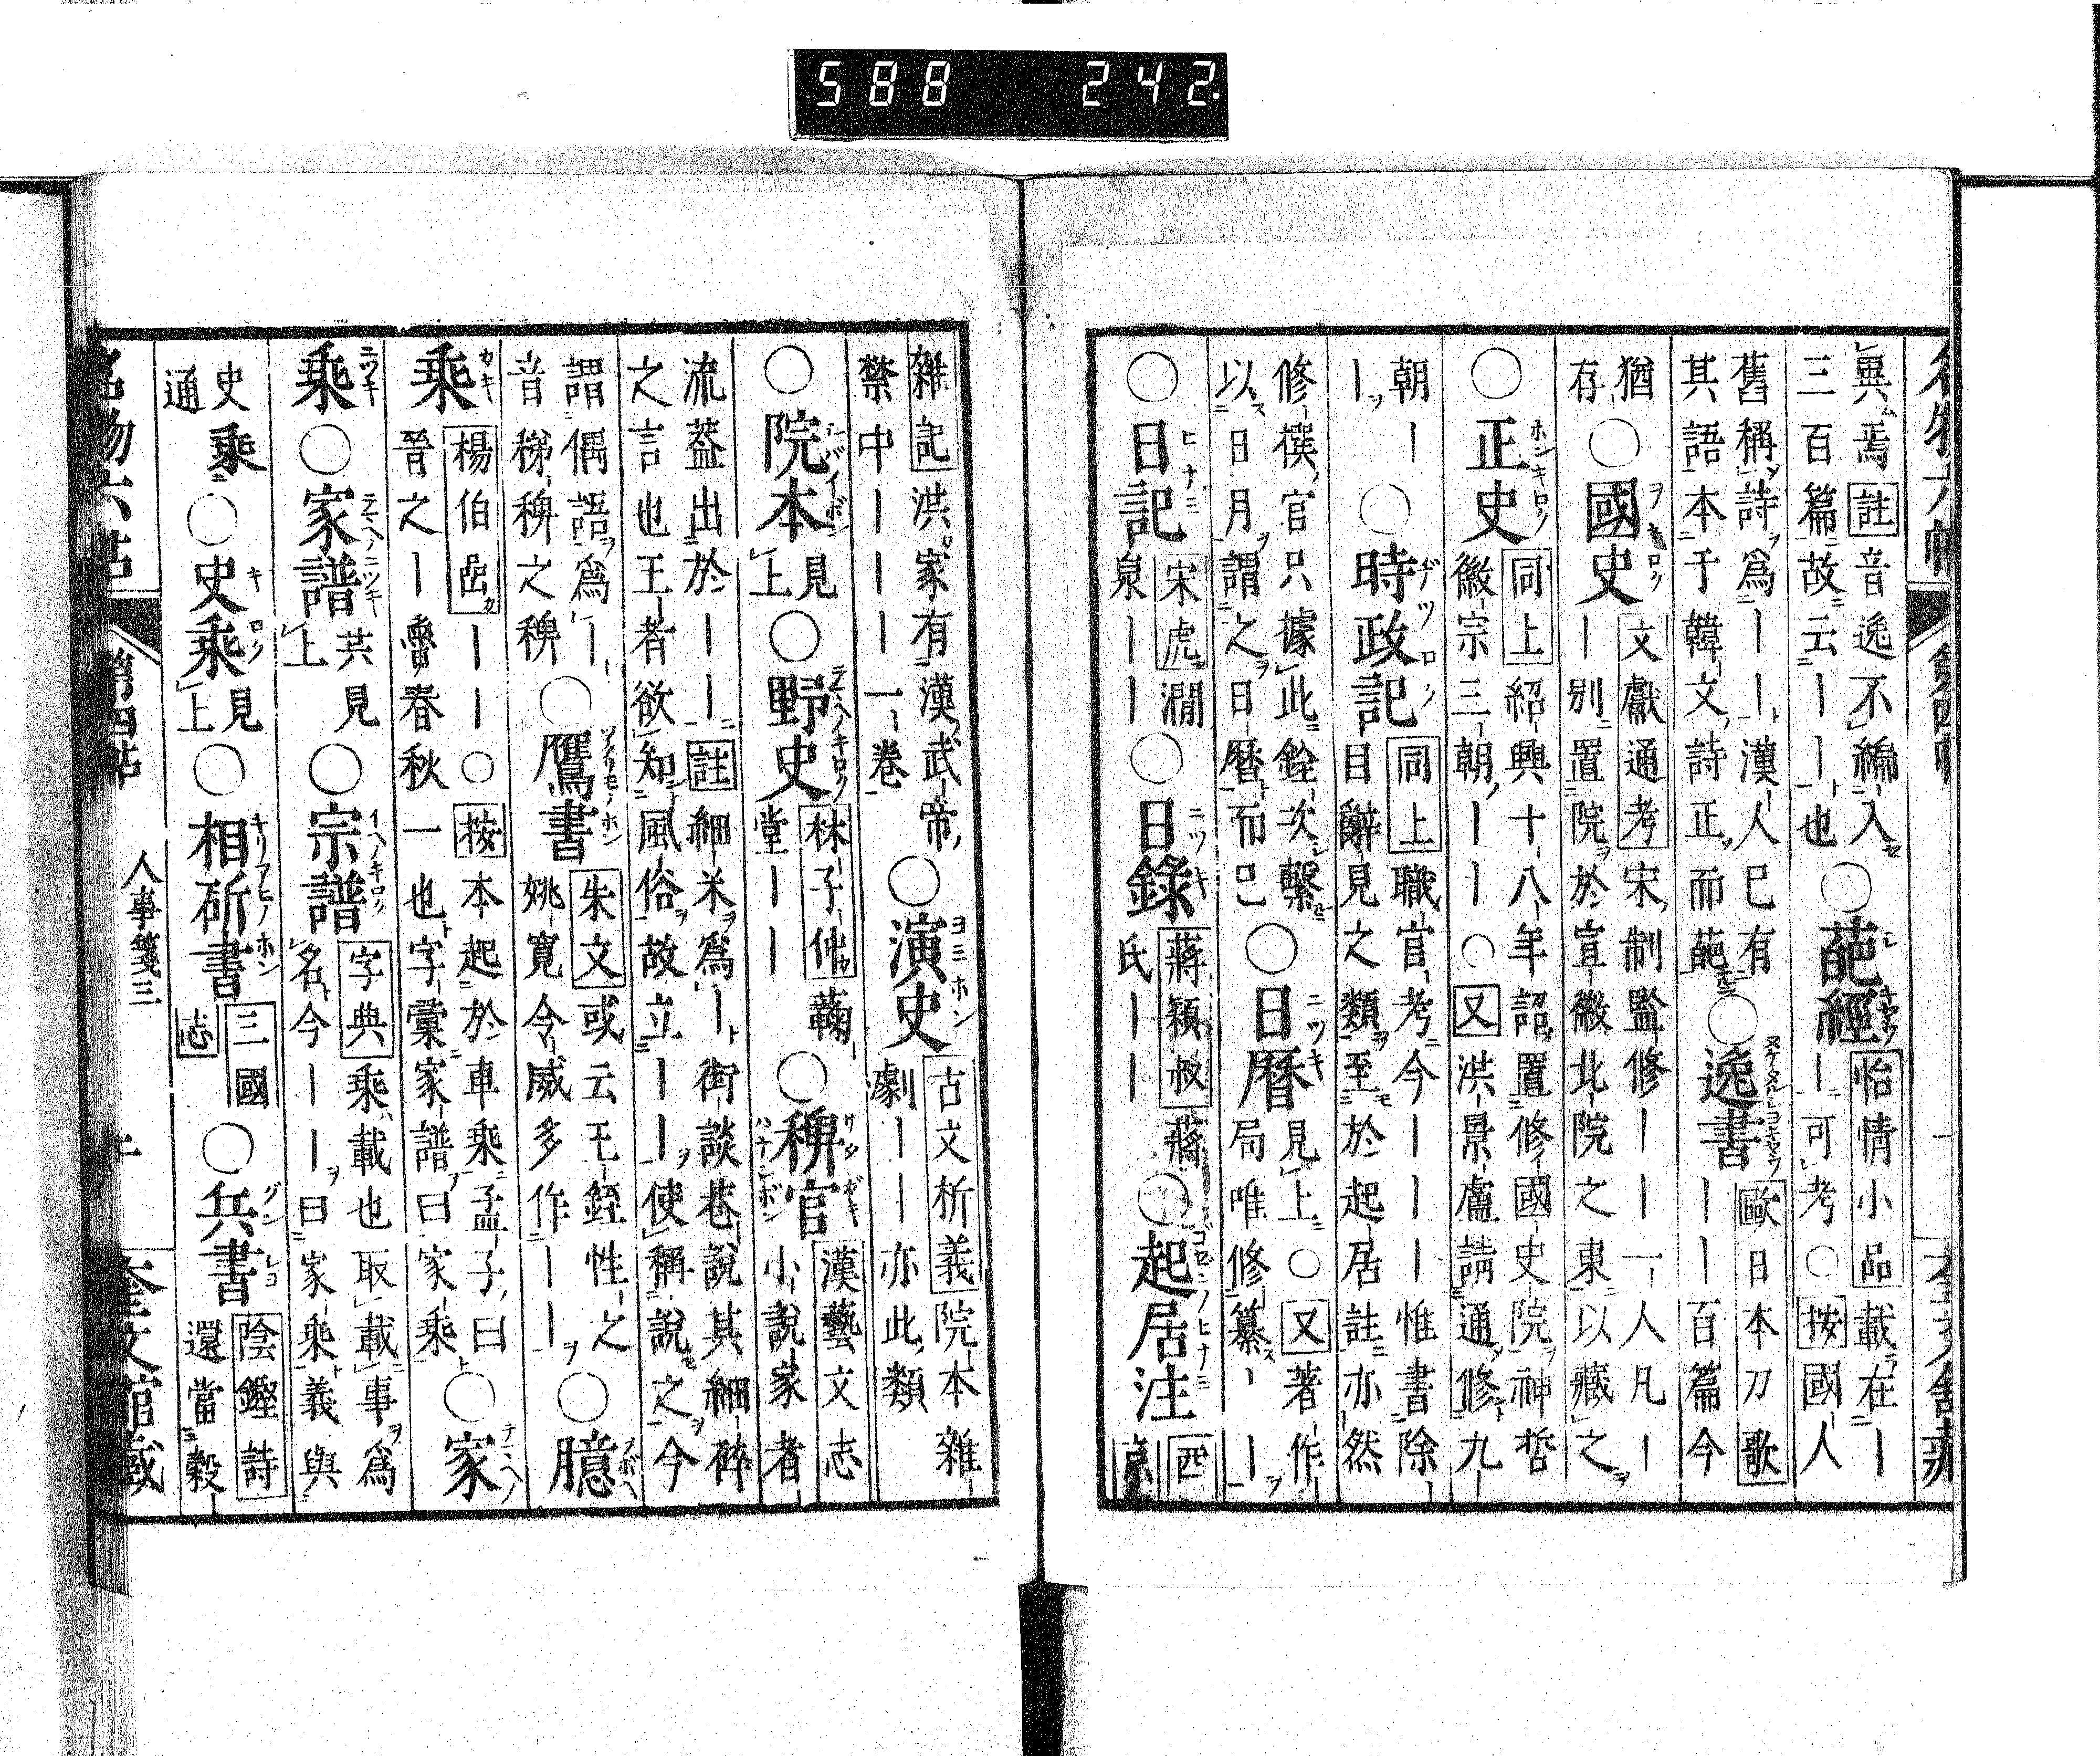 588 242
異焉註音逸不編入○葩經怡情小品載在｜
三百篇故云｜｜也　｜可考○按國人
舊稱詩爲｜｜漢人已有○逸書歐日本刀歌
其語本于韓文詩正而葩　｜｜百篇今
猶存○國史文獻通考宋制監修｜｜一人凡｜
｜別置院於宣徽北院之東以藏之
○正史同上紹興十八年詔置修國史院神哲
徽宗三朝｜｜○又洪景盧請通修九
朝｜○時政記同上職官考今｜｜｜惟書除
｜　目辭見之類至於起居註亦然
修撰官只據此銓次繫○日曆見上○又著作
以日月謂之日曆而已　局唯修纂｜｜
○日記宋虎　○日錄蔣穎叔蔣○起居注西
泉｜｜　氏｜｜　京
雜記洪家有漢武帝○演史古文析義院本雜
禁中｜｜｜一卷　劇｜｜亦此類
○院本見上○野史林子仲鞠○稗官漢藝文志
堂｜｜　小說家者
流蓋出於｜｜註細米爲｜街談巷說其細碎
之言也王者欲知風俗故立｜｜使稱說之今
謂偶語爲｜○鷹書朱文或云王銍性之○臆
音稊稗之稗　姚寬令威多作｜｜
乘楊伯嵒｜｜○按本起於車乘孟子曰○家
晉之｜魯春秋一也字彙家譜曰家乘
乘○家譜共見上○宗譜字典乘載也取載事爲
名今｜｜曰家乘義與
史乘○史乘見上○相斫書三國志○兵書陰鏗詩
通　還當穀
名物六帖　第四帖　人事箋三　奎文館藏